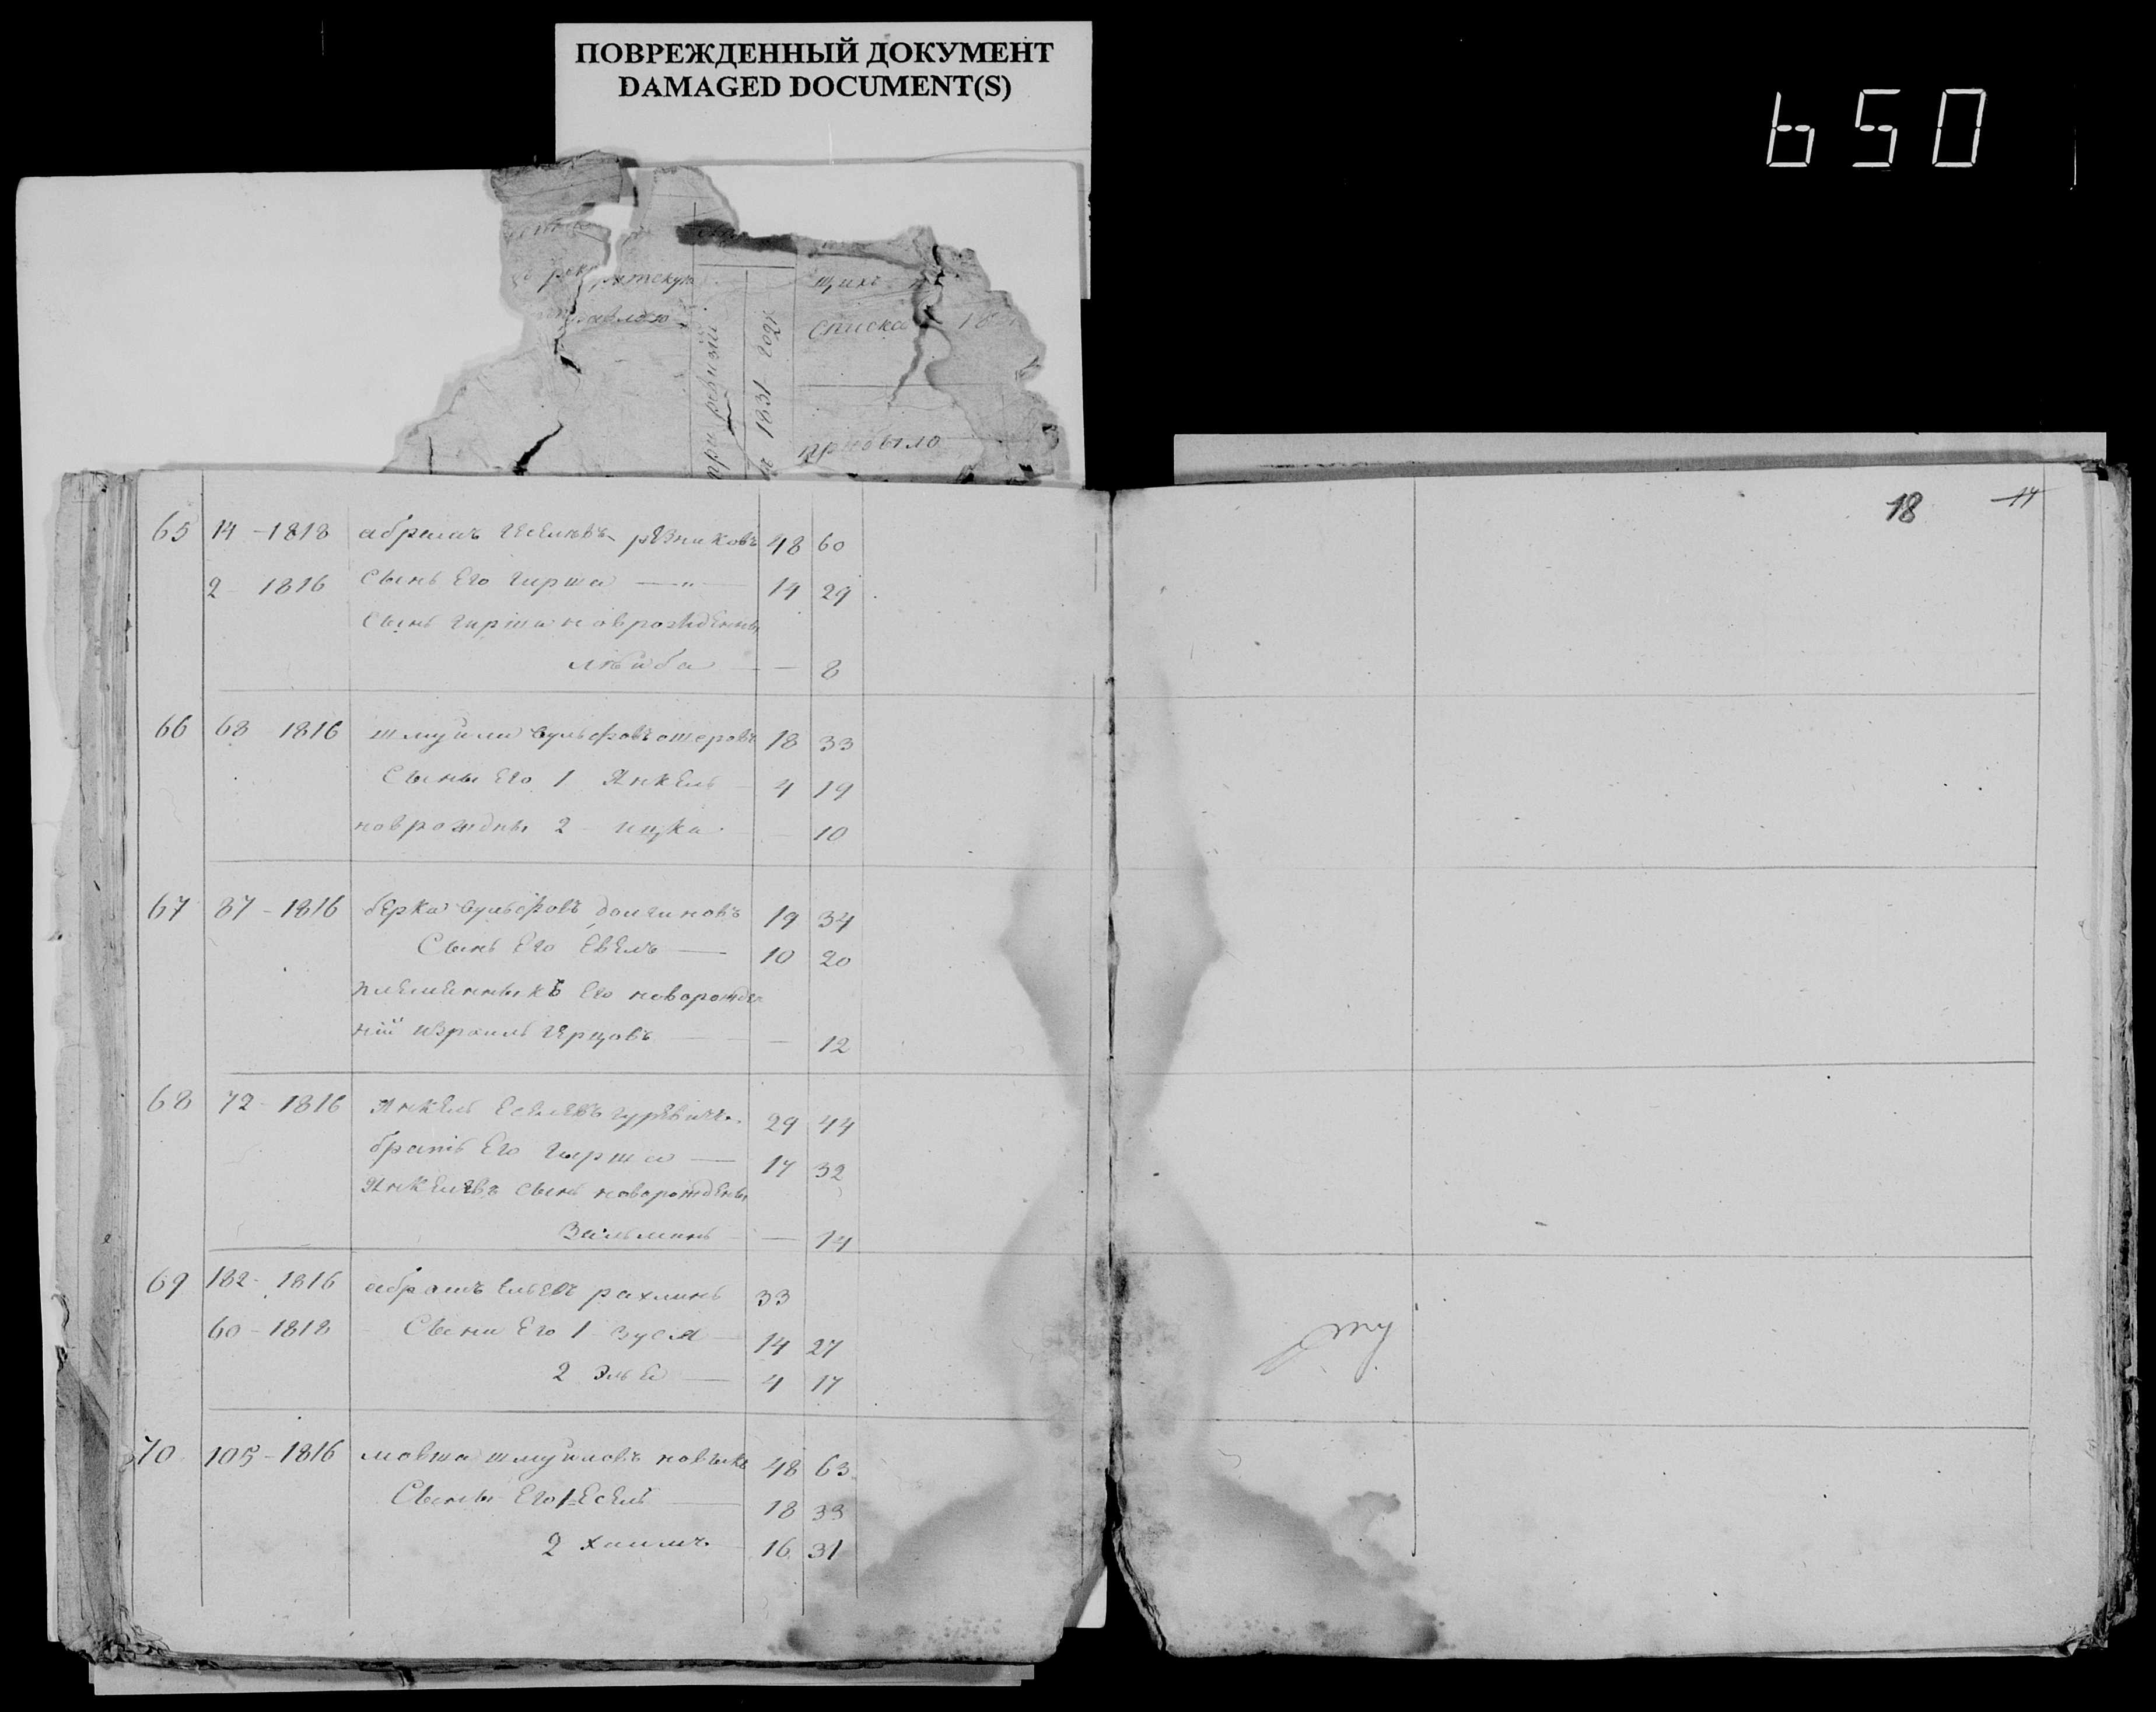 ПОВРЕЖДЕННЫЙ ДОКУМЕНТ
DAMAGED DOCUMENT(S)
650
щихъ
списка 18
при ревизіи
1831 году
прибыло
18 17
65 14 - 1818 абрамъ рѣзниковъ 48 60
2 1816 Сынъ Его гирша — " — 14 29
Сынъ гирши новрожденны
лѣйба — — 8
66 68 1816 шмуйла вульфовъ ошеровъ 18 33
Сыны Его 1 Янкель 4 19
новрождны 2 - ицка - 10
67 87 - 1816 берка вульфовъ долгиновъ 19 34
Сынъ Его Евель — 10 20
племенныкъ Его новорожде
ній израиль герцовъ — — 12
68 72 - 1816 Янкель гуревичъ 29 44
братъ Его гирша — 17 32
Янкелевъ сынъ новорожденны
Зальманъ — 14
69 182 - 1816 абрамъ рахлинъ 33
60 - 1818 Сыни Его 1 зуся 14 27
2 Элья — 4 17
70 105 - 1816 мовша шмуйловъ новикъ 48 63
Сыны Его 1 Есель — 18 33
2 хаимъ 16 31